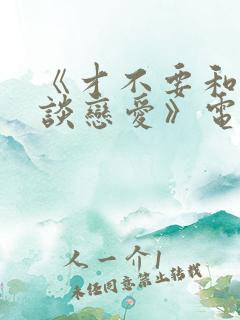 《才不要和
談戀愛》電
人一介1
未經同意禁止轉載